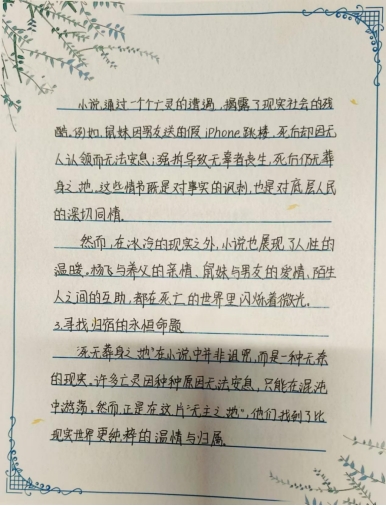 小说通过一个个亡灵的遭遇，揭露了现实社会的残
酷。例如，鼠妹因男友送的假iPhone跳楼，死后却因无
人认领而无法安息；强拆导致无辜者丧生，死后仍无葬
身之地。这些情节既是对事实的讽刺，也是对底层人民
的深切同情。
然而，在冰冷的现实之外，小说也展现了人性的
温暖。杨飞与养父的亲情、鼠妹与男友的爱情、陌生
人之间的互助，都在死亡的世界里闪烁着微光。
3.寻找归宿的永恒命题
"死无葬身之地"在小说中并非诅咒，而是一种无奈
的现实。许多亡灵因种种原因无法安息，只能在混沌
中游荡。然而正是在这片"无主之地"，他们找到了比
现实世界更纯粹的温情与归属。